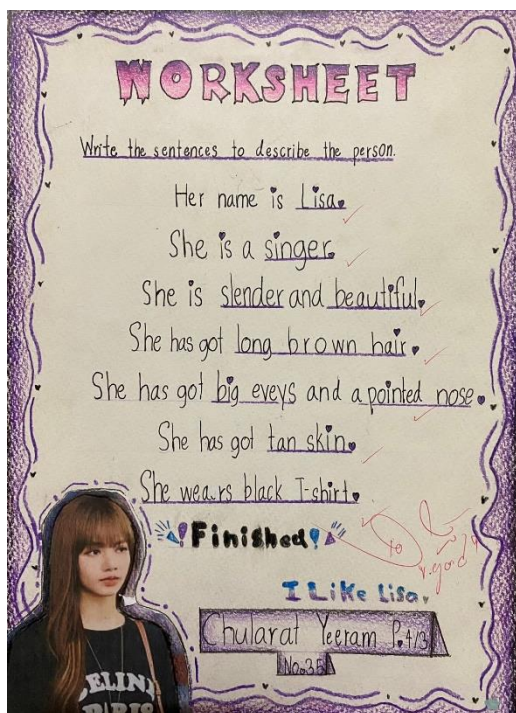 WORKSHEET
Write the sentences to describe the person.
Her name is Lisa.
She is a singer.
She is slender and beautiful.
She has got long brown hair.
She has got big eveys and a pointed nose.
She has got tan skin.
She wears black T-shirt.
Finished
10
v.good
I Like Lisa.
Chularat Yeeram P.4/3
No.35
CELINE
PARIS